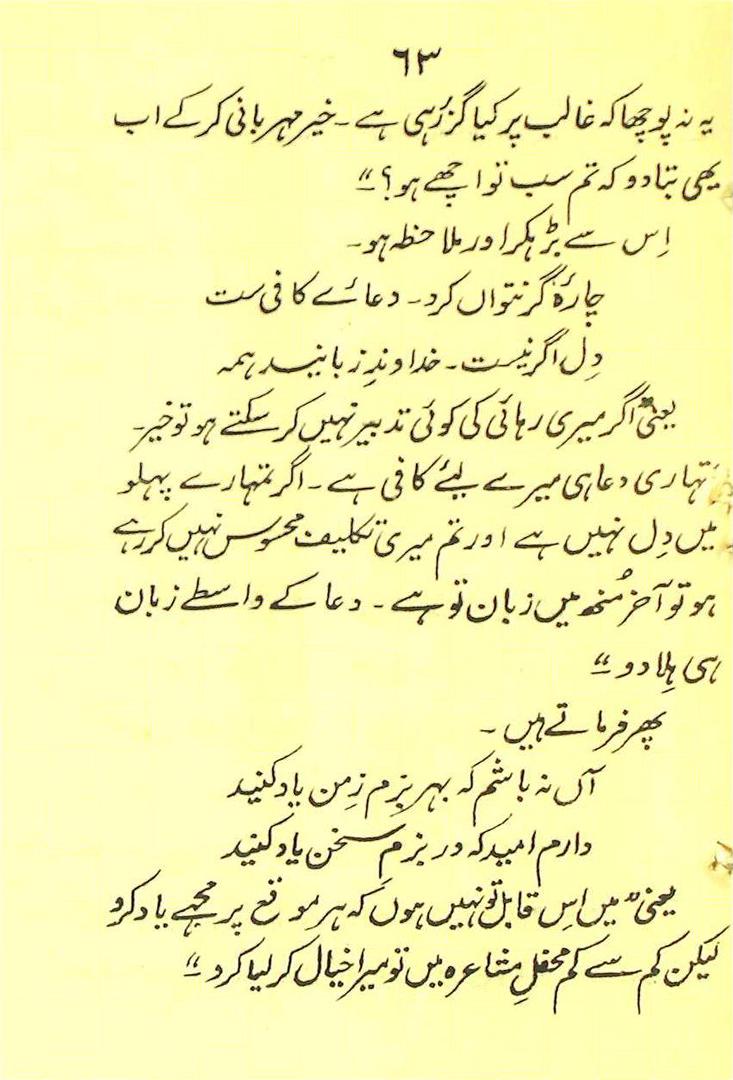 ٦٣
یہ نہ پوچھا کہ غالب پر کیا گزر رہی ہے ۔ خیر مہربانی کر کے اب
بھی بتا دو کہ تم سب تو اچھے ہو؟"
اِس سے بڑہکر اور ملاحظہ ہو۔
چارۂ گر نتواں کرد ۔ دعائے کافی ست
دِل اگر نیست ۔ خداوندِ زبانید ہمہ
یعنی "اگر میری رہائی کی کوئی تدبیر نہیں کر سکتے ہو تو خیر۔
تمہاری دعا ہی میرے لیئے کافی ہے ۔ اگر تمہارے پہلو
میں دِل نہیں ہے اور تم میری تکلیف محسوس نہیں کر رہے
ہو تو آخر مُنھ میں زبان تو ہے ۔ دعا کے واسطے زبان
ہی ہِلا دو"
پھر فرماتے ہیں ۔
آں نہ باشم کہ بہر بزم زِمن یاد کنید
دارم امید کہ در بزمِ سخن یاد کنید
یعنی "میں اِس قابل تو نہیں ہوں کہ ہر موقع پر مجہے یاد کرو
لیکن کم سے کم محفلِ مشاعرہ میں تو میرا خیال کر لیا کرو"